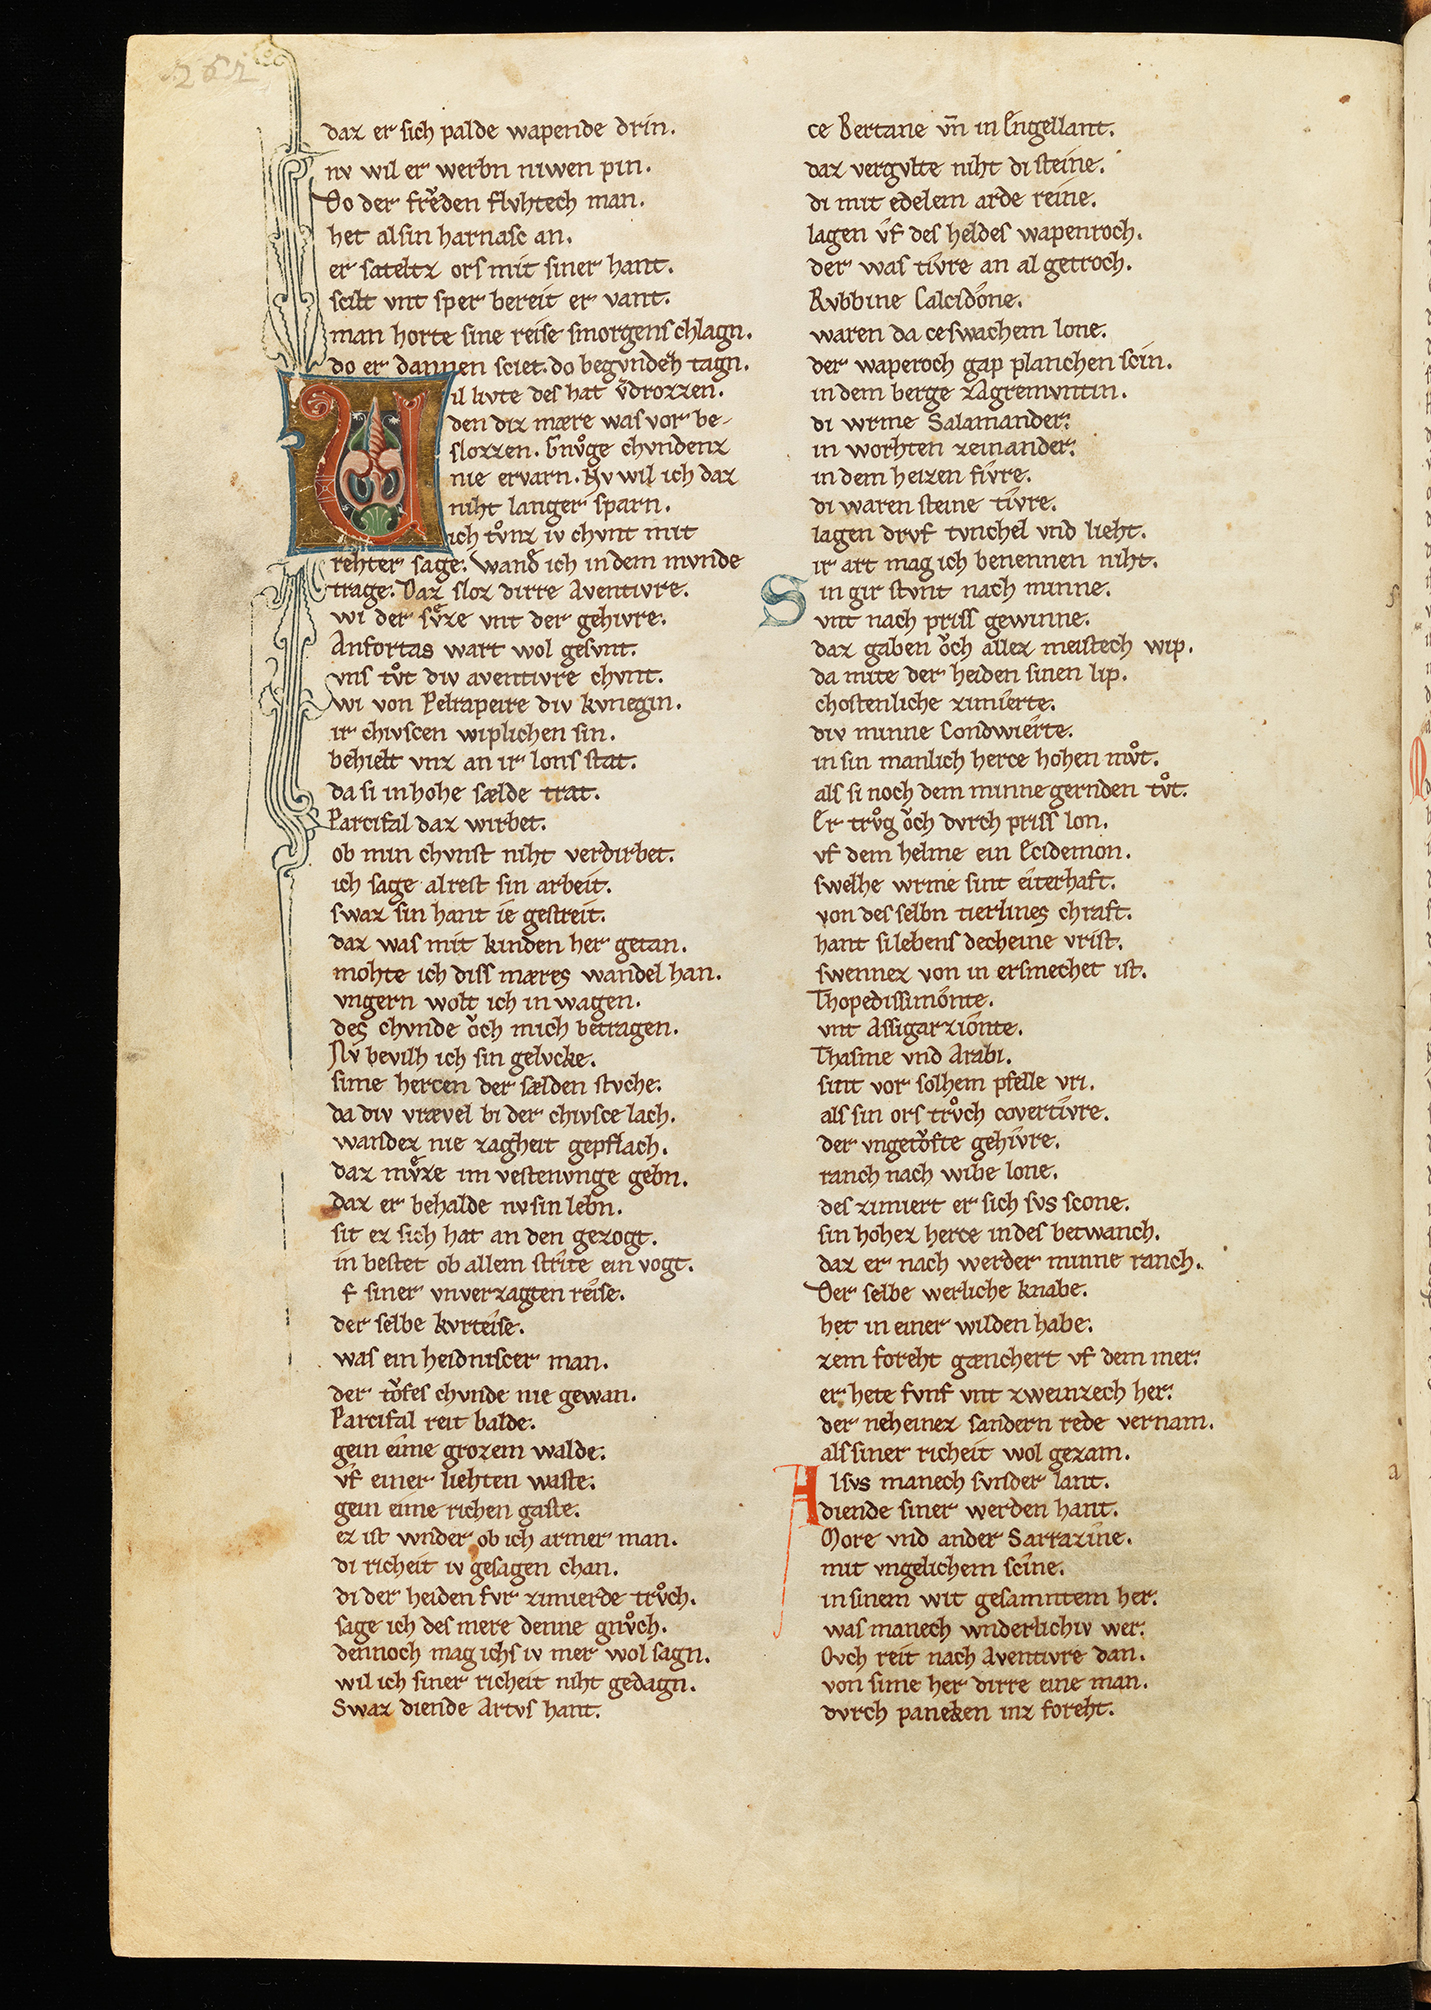 262
daz er sich palde wapende drin.
nv wil er werbn niwen pin.
Do der frͤden flvhtech man.
het al sin harnasc an.
er sateltz ors mit siner hant.
scilt vnt sper bereit er vant.
man horte sine reise smorgens chlagn.
do er dannen sciet. do begvndeh tagn.
Vil livte des hat v̄drozzen.
den diz mære was vor be-
slozzen. Gnvͦge chvndenz
nie ervarn. Nv wil ich daz
niht langer sparn.
ich tvͦnz iv chvnt mit
rehter sage. wand ich in dem mvnde
trage. Daz sloz dirre Aventivre.
wi der svͤze vnt der gehivre.
Anfortas wart wol gesvnt.
vns tvͦt div aventivre chvnt.
wi von Pelrapeire div kvnegin.
ir chivscen wiplichen sin.
behielt vnz an ir lons stat.
da si in hohe sælde trat.
Parcifal daz wirbet.
ob min chvnst niht verdirbet.
ich sage alrest sin arbeit.
swaz sin hant ie gestreit.
daz was mit kinden her getan.
mohte ich diss mæres wandel han.
vngern wolt ich in wagen.
des chvnde oͮch mich betragen.
Nv bevilh ich sin gelvcke.
sime hercen der sælden stvche.
da div vrævel bi der chivsce lach.
wandez nie zagheit gepflach.
daz mvͤze im vestenvnge gebn.
daz er behalde nv sin lebn.
sit ez sich hat an den gezogt.
in bestet ob allem strite ein vogt.
f siner vnverzagten reise.
der selbe kvrteise.
was ein heidniscer man.
der toͮfes chvnde nie gewan.
Parcifal reit balde.
gein eime grozem walde.
vf einer liehten waste.
gein eime richen gaste.
ez ist wnder ob ich armer man.
di richeit iv gesagen chan.
di der heiden fvr zimierde trvͦch.
sage ich des mere denne gnvͦch.
dennoch mag ichs iv mer wol sagn.
wil ich siner richeit niht gedagn.
Swaz diende Artvs hant.
ce Bertane vn̄ in Engellant.
daz vergvlte niht di steine.
di mit edelem arde reine.
lagen vf des heldes wapenroch.
der was tivre an al getroch.
Rvbbine Calcidone.
waren da ce swachem lone.
der waperoch gap planchen scin.
in dem berge zAgremvntin.
di wrme Salamander.
in worhten zeinander.
in dem heizen fivre.
di waren steine tivre.
lagen drvf tvnchel vnd lieht.
ir art mag ich benennen niht.
Sin gir stvnt nach minne.
vnt nach priss gewinne.
daz gaben oͮch allez meistech wip.
da mite der heiden sinen lip.
chostenliche zimierte.
div minne Condwierte.
in sin manlich herce hohen mvͦt.
als si noch dem minne gernden tvͦt.
Er trvͦg oͮch dvrch priss lon.
vf dem helme ein Ecidemon.
swelhe wrme sint eiterhaft.
von des selbn tierlines chraft.
hant si lebens decheine vrist.
swennez von in ersmechet ist.
Thopedissimonte.
vnt Assigarzionte.
Thasme vnd Arabi.
sint vor solhem pfelle vri.
als sin ors trvͦch covertivre.
der vngetoͮfte gehivre.
ranch nach wibe lone.
des zimiert er sich svs scone.
sin hohez herce in des betwanch.
daz er nach werder minne ranch.
Der selbe werliche knabe.
het in einer wilden habe.
zem foreht gænchert vf dem mer.
er hete fvnf vnt zweinzech her.
der neheinez sandern rede vernam.
als siner richeit wol gezam.
Alsvs manech svnder lant.
diende siner werden hant.
More vnd ander Sarrazine.
mit vngelichem scine.
in sinem wit gesamntem her.
was manech wnderlichiv wer.
Ovch reit nach Aventivre dan.
von sime her dirre eine man.
dvrch paneken inz foreht.